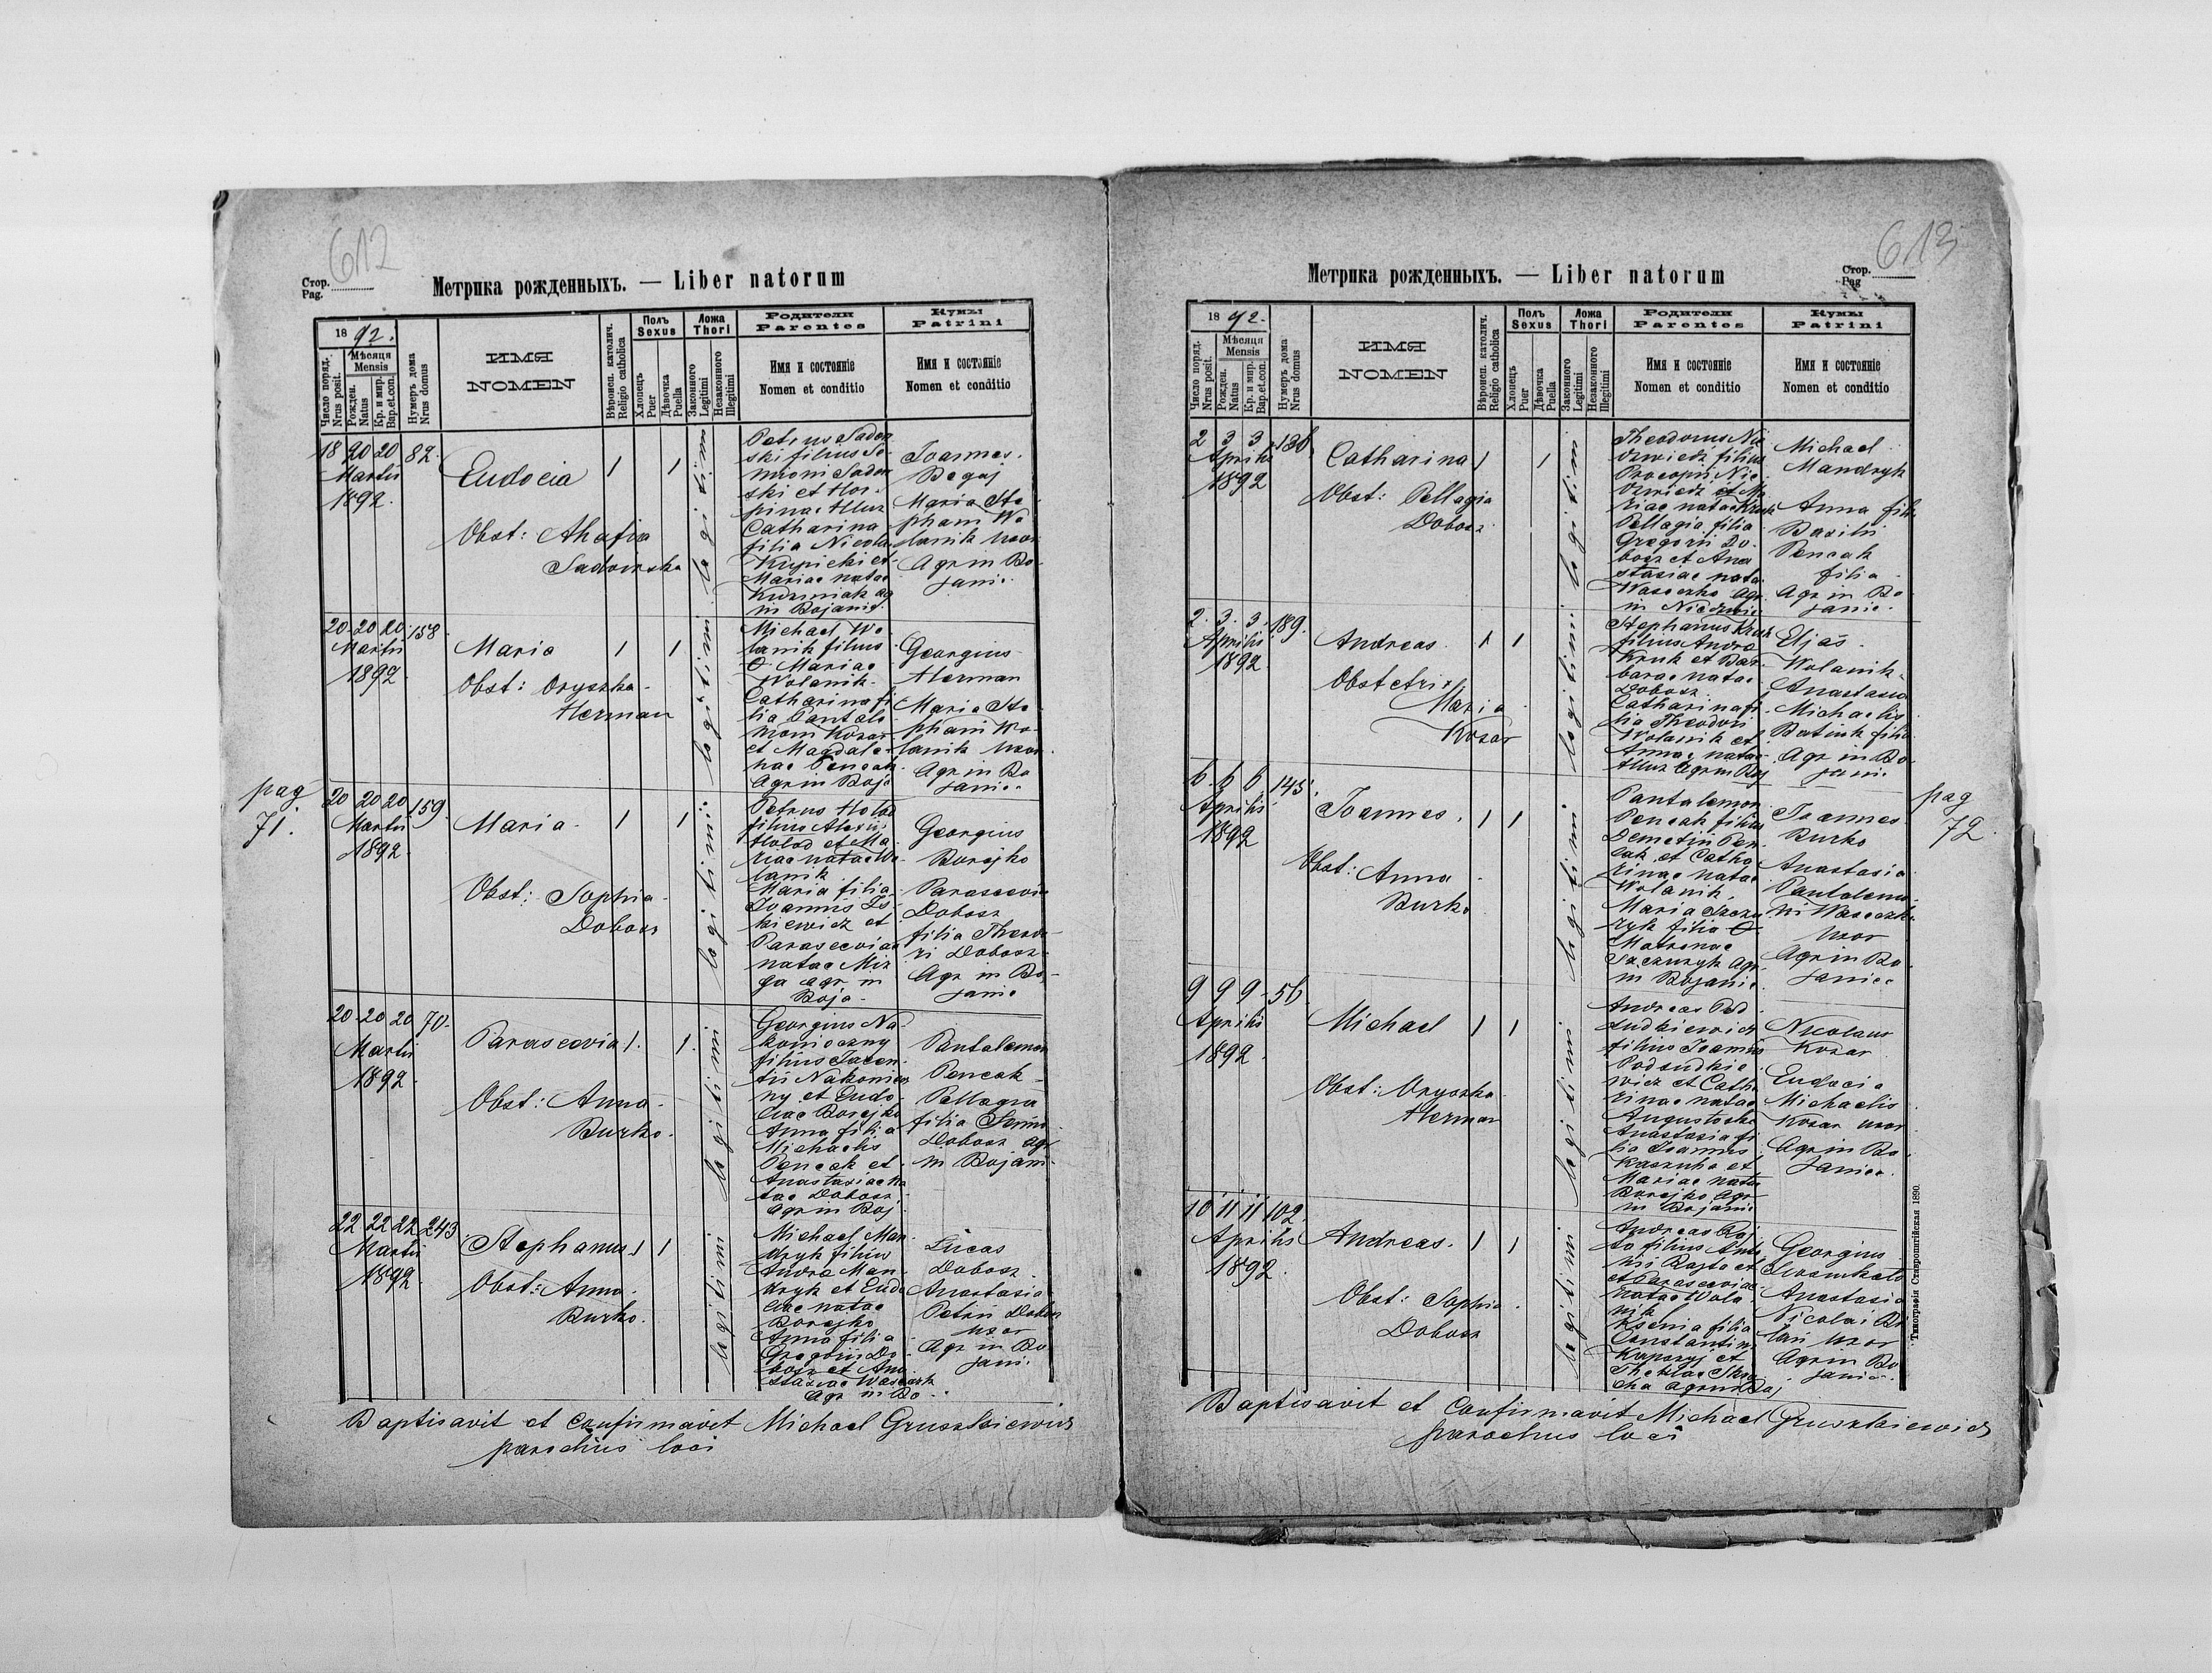 612
Стор.
Pag.
Метрика рожденныхъ. — Liber natorum
18 92.
Число поряд.
Nrus posit.
Мѣсяця
Mensis
Рожден.
Natus
Кр. и мир.
Bap. et con.
Нумеръ дома
Nrus domus
ИМЯ
NOMEN
Вѣроисп. католич.
Religio catholica
Полъ
Sexus
Хлопець
Puer
Дѣвочка
Puella
Ложа
Thori
Законного
Legitimi
Незаконного
Illegitimi
Родители
Parentes
Имя и состояніе
Nomen et conditio
Кумы
Patrini
Имя и состояніе
Nomen et conditio
18 20 20 82.
Martii
1892.
Eudocia 1 1
Obst: Ahafia
Sadowska
legitimi
Petrus Sadow
ski filius Si
meoni Sadow
ski et Hor
pinae Muz
Catharina
filia Nicolai
Krupicki et
Mariae natae
Kuzmiak ag
in Bojanie.
Joannes
Begaj
Maria Ste
phani Wo
lanik uxor
Agr in Bo
janie.
20 20 20 158.
Martii
1892
Maria 1 1
Obst: Oryszka
Herman
legitimi
Michael Wo
lanik filius
Mariae
Wolanik.
Catharina fi
lia Pantale
moni Kozar
et Magdale
nae Pencak
Agr in Boja
Georgius
Herman
Maria Ste
phani Wo
lanik uxor
Agr in Bo
janie.
pag
71.
20 20 20 159.
Martii
1892.
Maria 1 1
Obst: Sophia
Dobosz
legitimi
Petrus Holod
filius Alexii
Holod et Ma
riae natae Wo
lanik
Maria filia
Joannis
kiewicz et
Parascevia
natae Miz
ga agr in
Boja
Georgius
Borejko
Parascevia
Dobosz
filia Theodo
ri Dobosz
Agr in Bo
janie
20 20 20 70.
Martii
1892.
Parascevia 1. 1.
Obst: Anna
Burko.
legitimi
Georgius Na
konieczny
filius Jacen
tii Nakoniecz
ny et Eudo
ciae Borejko
Anna filia
Michaelis
Pencak et
Anastasiae na
tae Dobosz
Agr in Boj
Pantalemon
Pencak
Pellagia
filia Simi
Dobosz agr
in Bojani
22 22 22 243.
Martii
1892.
Stephanus 1 1
Obst: Anna
Burko.
legitimi
Michael Man
dryk filius
Andrea Man
dryk et Eudo
ciae natae
Borejko
Anna filia
Gregorii Do
bosz et Ana
stasiae Waseczk
agr in Bo
Lucas
Dobosz
Anastasia
Petri Dobosz
uxor
Agr in Bo
jani.
Baptisavit et Confirmavit Michael Gruszkiewicz
parochus loci
613
Метрика рожденныхъ. — Liber natorum
Стор.
Pag
18 92.
Число поряд.
Nrus posit.
Мѣсяця
Mensis
Рожден.
Natus
Кр. и мир.
Bap. et con.
Нумеръ дома
Nrus domus
ИМЯ
NOMEN
Вѣроисп. католич.
Religio catholica
Полъ
Sexus
Хлопець
Puer
Дѣвочка
Puella
Ложа
Thori
Законного
Legitimi
Незаконного
Illegitimi
Родители
Parentes
Имя и состояніе
Nomen et conditio
Кумы
Patrini
Имя и состояніе
Nomen et conditio
2 3 3 136
Aprilis
1892
Catharina 1 1
Obst: Pellagia
Dobosz
legitimi
Theodorus Nie
dzwiedz filius
Procopii Nie
dzwiedz et Ma
riae natae Kruk
Pellagia filia
Gregorii Do
bosz et Ana
stasiae nata
Waseczko Agr.
in
Michael
Mandryk
Anna filia
Basilii
Pencak
filia
Agr in Bo
janie.
2. 3. 3. 189.
Aprilis
1892
Andreas 1 1
Obstetrix
Maria
Kozar
legitimi
Stephanus Kruk
filius Andrea
Kruk et Bar
barae natae
Dobosz
Catharina fi
lia Theodori
Wolanik et
Annae natae
Muz Agr in Boj
Eljas
Wolanik
Anastasia
Michaelis
filia
Agr in Bo
janie
pag
72.
6 6 6 145.
Aprilis
1892
Joannes. 1 1
Obst: Anna
Burko
legitimi
Pantalemon
Pencak filius
Demetrii Pen
cak et Catha
rinae natae
Wolanik.
Maria Szczu
ryk filia
Matronae
Szczuryk Agr
in Bojanie
Joannes
Burko
Anastasia
Pantalemo
ni Waseczko
uxor
Agr in Bo
janie.
9 9 9 56
Aprilis
1892.
Michael 1 1
Obst: Oryszka
Herman
legitimi
Andreas Pod
sudkiewicz
filius Joannis
Podsudkie
wicz et Catha
rinae natae
Augustoska
Anastasia fi
lia Joannis
Kaszuha et
Mariae nata
Borejko Agr
in Bojanie
Nicolaus
Kozar
Eudocia
Michaelis
Kozar uxor
Agr in Bo
janie.
10 11 11 102.
Aprilis
1892.
Andreas. 1 1
Obst: Sophia
Dobosz
legitimi
filius Anto
et
et Parasceviae
natae Wola
nik
Ksenia filia
Constantini
et
Theklae
agr in Boj
Georgius
Anastasia
Nicolai
uxor
Agr in Bo
janie.
Baptisavit et Confirmavit Michael Gruszkiewicz
parochus loci
Типографія Ставропигійская 1890.